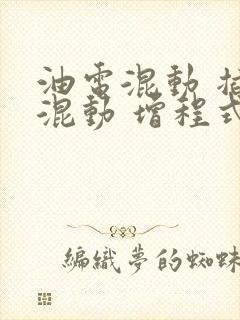 油電混動 插
混動 增程式
編織夢的蜘蛛